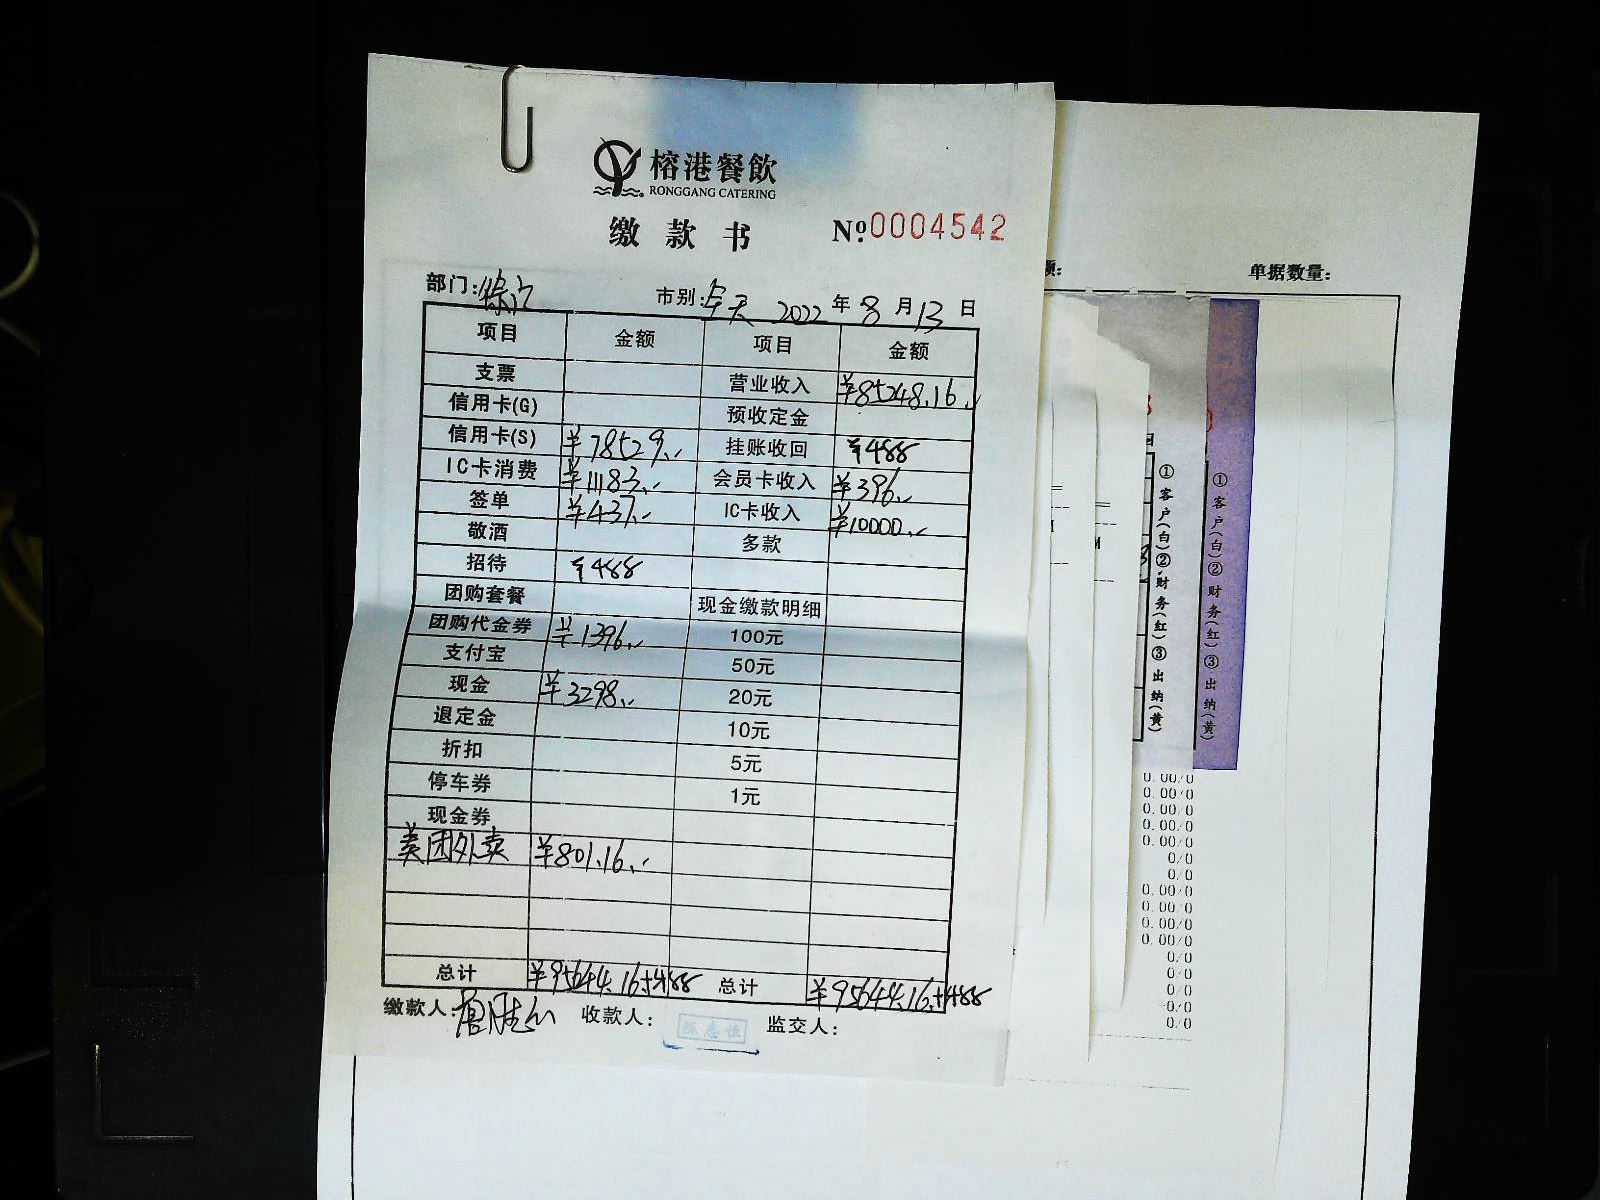 榕港餐飲
RONGGANG CATERING
缴款书 №0004542
部门: 市别:全天 2022年8月13日
项目 金额 项目 金额
支票 营业收入 ¥85248.16
信用卡(G) 预收定金
信用卡(S) ¥78529 挂账收回 ¥488
IC卡消费 ¥11183 会员卡收入 ¥396
签单 ¥437 IC卡收入 ¥10000
敬酒 多款
招待 ¥488
团购套餐 现金缴款明细
团购代金券 ¥1396 100元
支付宝 50元
现金 ¥3298 20元
退定金 10元
折扣 5元
停车券 1元
现金券
美团外卖 ¥801.16
总计 ¥95644.16+488 总计 ¥95644.16+488
缴款人: 收款人: 陈志恒 监交人:
单据数量:
①客户(白)②财务(红)③出纳(黄)
①客户(白)②财务(红)③出纳(黄)
0.00/0
0.00/0
0.00/0
0.00/0
0.00/0
0/0
0/0
0.00/0
0.00/0
0.00/0
0.00/0
0/0
0/0
0/0
0/0
0/0